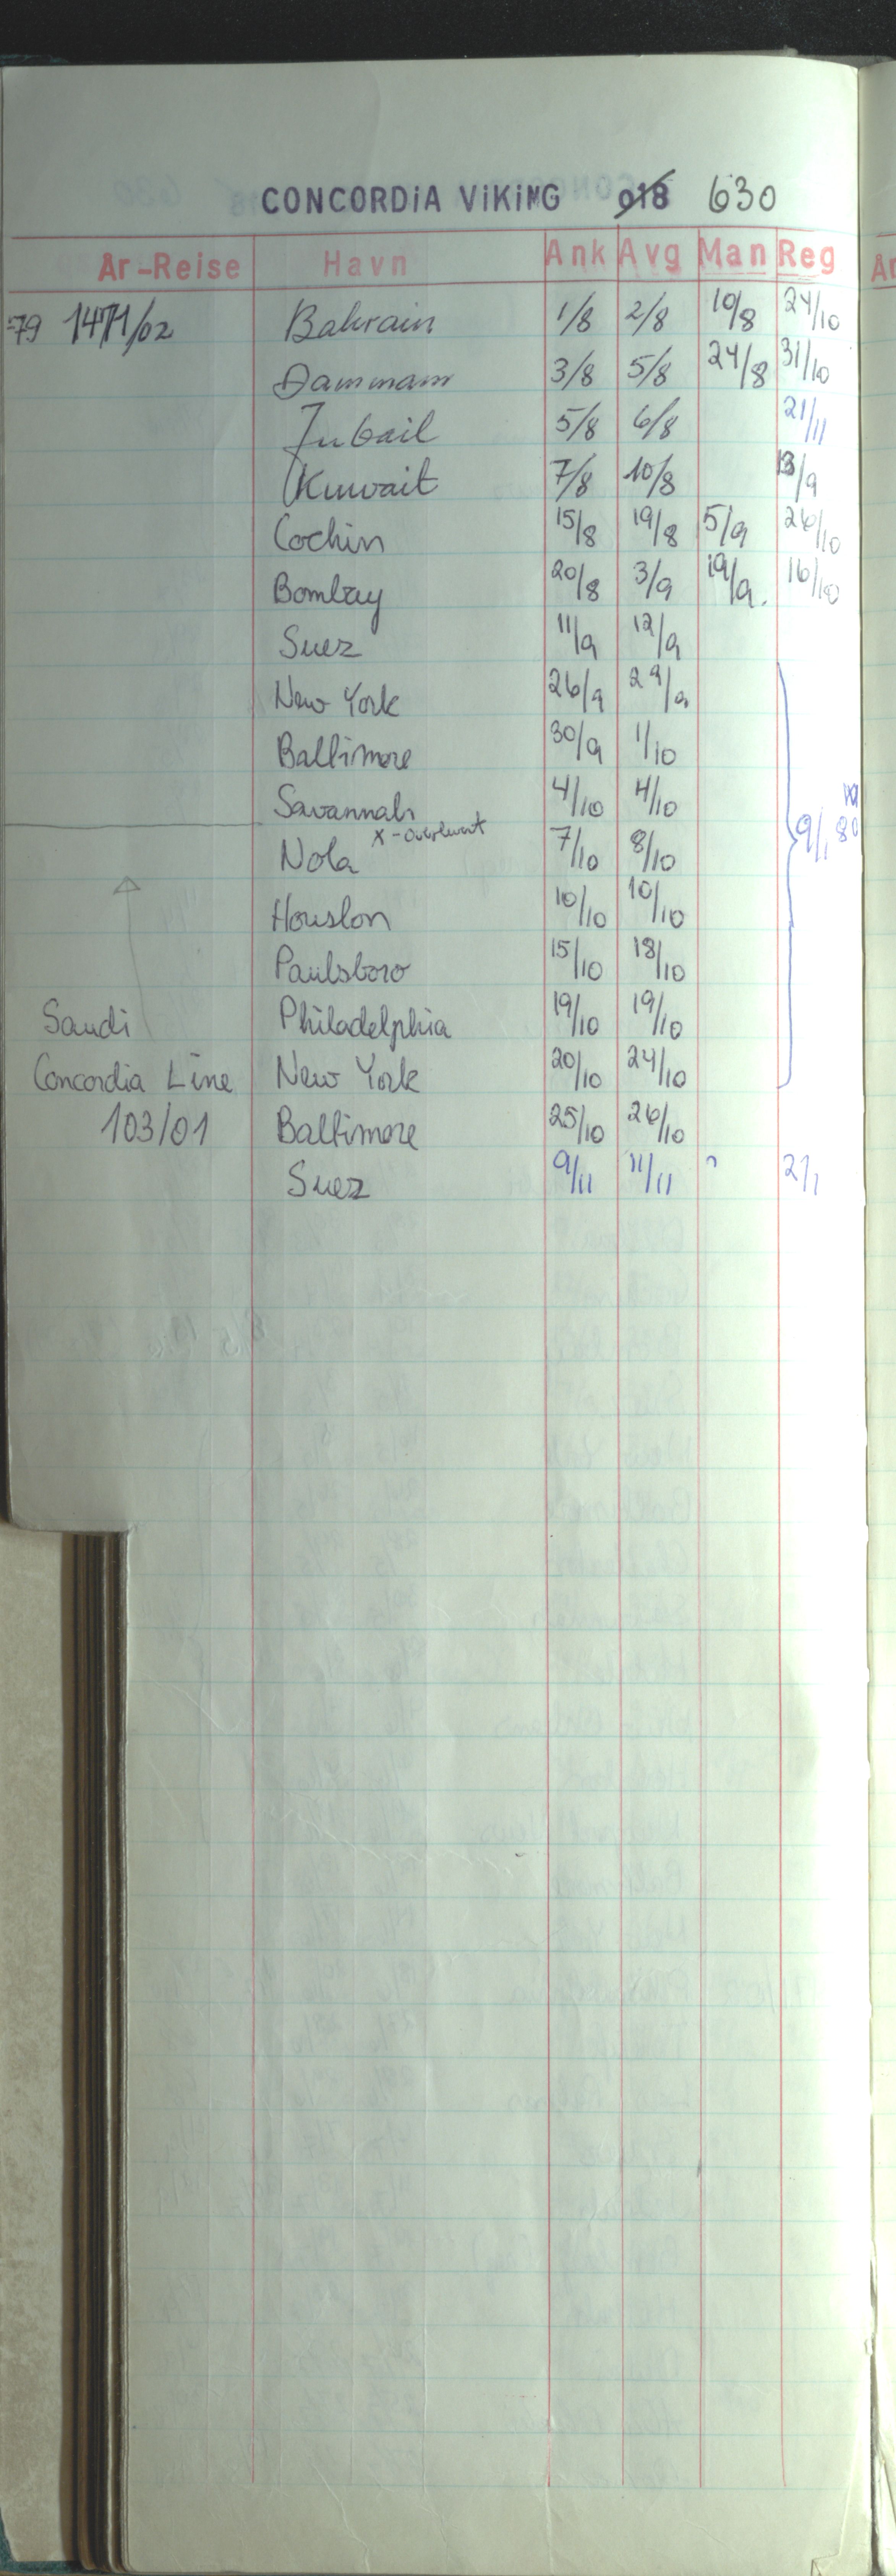 CONCORDiA ViKiNG 018 630
År-Reise Havn Ank Avg Man Reg
79 1471/02 Bahrain 1/8 2/8 10/8 24/10
Dammam 3/8 5/8 24/8 31/10
Jubail 5/8 6/8 21/11
Kuwait 7/8 10/8 13/9
Cochin 15/8 19/8 5/9 26/10
Bombay 20/8 3/9 19/9. 16/10
Suez 11/9 12/9
New York 26/9 29/9
Baltimore 30/9 1/10
Savannah 4/10 4/10
x-overlevert
Nola 7/10 8/10 9/1 80
Houston 10/10 10/10
Paulsboro 15/10 18/10
Saudi Philadelphia 19/10 19/10
Concordia Line New York 20/10 24/10
103/01 Baltimore 25/10 26/10
Suez 9/11 11/11 2/1